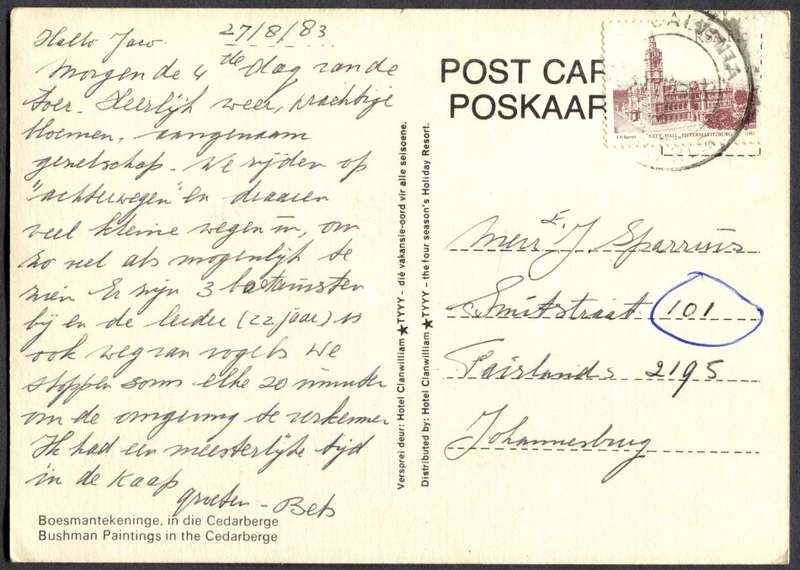 27/8/83
Hallo Jaco
Morgen de 4de dag van de
toer. Heerlijk weer, prachtige
bloemen, aangenaam
gezelschap. We rijden op
"achterwegen" en draaien
veel kleine wegen in, om
zo veel als mogenlijk te
zien Er zijn 3 botanisten
bij en de leider (22 jaar) is
ook weg van vogels We
stoppen soms elke 20 minuten
om de omgeving te verkennen
Ik had een meesterlijke tijd
in de Kaap
groeten - Bets
Boesmantekeninge, in die Cedarberge
Bushman Paintings in the Cedarberge
Versprei deur: Hotel Clanwilliam ★ TYYY - dié vakansie-oord vir alle seisoene.
Distributed by: Hotel Clanwilliam ★ TYYY - the four season's Holiday Resort.
POST CAR
POSKAAR
RSA
CITY HALL, PIETERMARITZBURG
Mnr J. Sparrius
Smitstraat 101
Fairlands 2195
Johannesburg